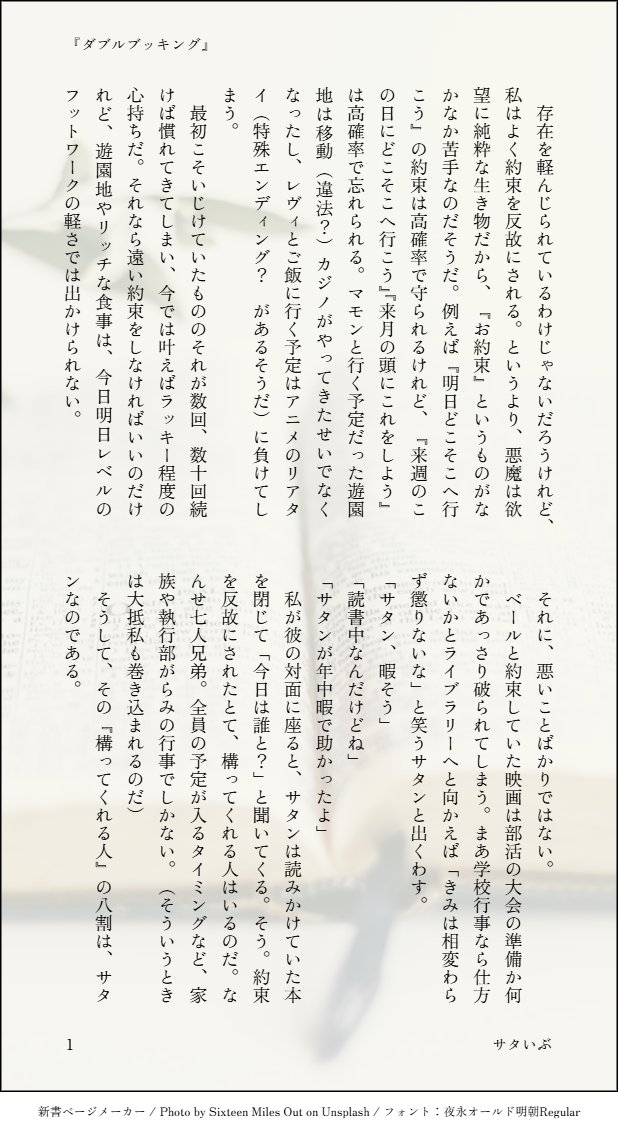 『ダブルブッキング』
　存在を軽んじられているわけじゃないだろうけれど、
私はよく約束を反故にされる。というより、悪魔は欲
望に純粋な生き物だから、『お約束』というものがな
かなか苦手なのだそうだ。例えば『明日どこそこへ行
こう』の約束は高確率で守られるけれど、『来週のこ
の日にどこそこへ行こう』『来月の頭にこれをしよう』
は高確率で忘れられる。マモンと行く予定だった遊園
地は移動（違法？）カジノがやってきたせいでなく
なったし、レヴィとご飯に行く予定はアニメのリアタ
イ（特殊エンディング？　があるそうだ）に負けてし
まう。
　最初こそいじけていたもののそれが数回、数十回続
けば慣れてきてしまい、今では叶えばラッキー程度の
心持ちだ。それなら遠い約束をしなければいいのだけ
れど、遊園地やリッチな食事は、今日明日レベルの
フットワークの軽さでは出かけられない。
　それに、悪いことばかりではない。
　ベールと約束していた映画は部活の大会の準備か何
かであっさり破られてしまう。まあ学校行事なら仕方
ないかとライブラリーへと向かえば「きみは相変わら
ず懲りないな」と笑うサタンと出くわす。
「サタン、暇そう」
「読書中なんだけどね」
「サタンが年中暇で助かったよ」
　私が彼の対面に座ると、サタンは読みかけていた本
を閉じて「今日は誰と？」と聞いてくる。そう。約束
を反故にされたとて、構ってくれる人はいるのだ。な
んせ七人兄弟。全員の予定が入るタイミングなど、家
族や執行部がらみの行事でしかない。（そういうとき
は大抵私も巻き込まれるのだ）
　そうして、その『構ってくれる人』の八割は、サタ
ンなのである。
1
サタいぶ
新書ページメーカー / Photo by Sixteen Miles Out on Unsplash / フォント：夜永オールド明朝Regular